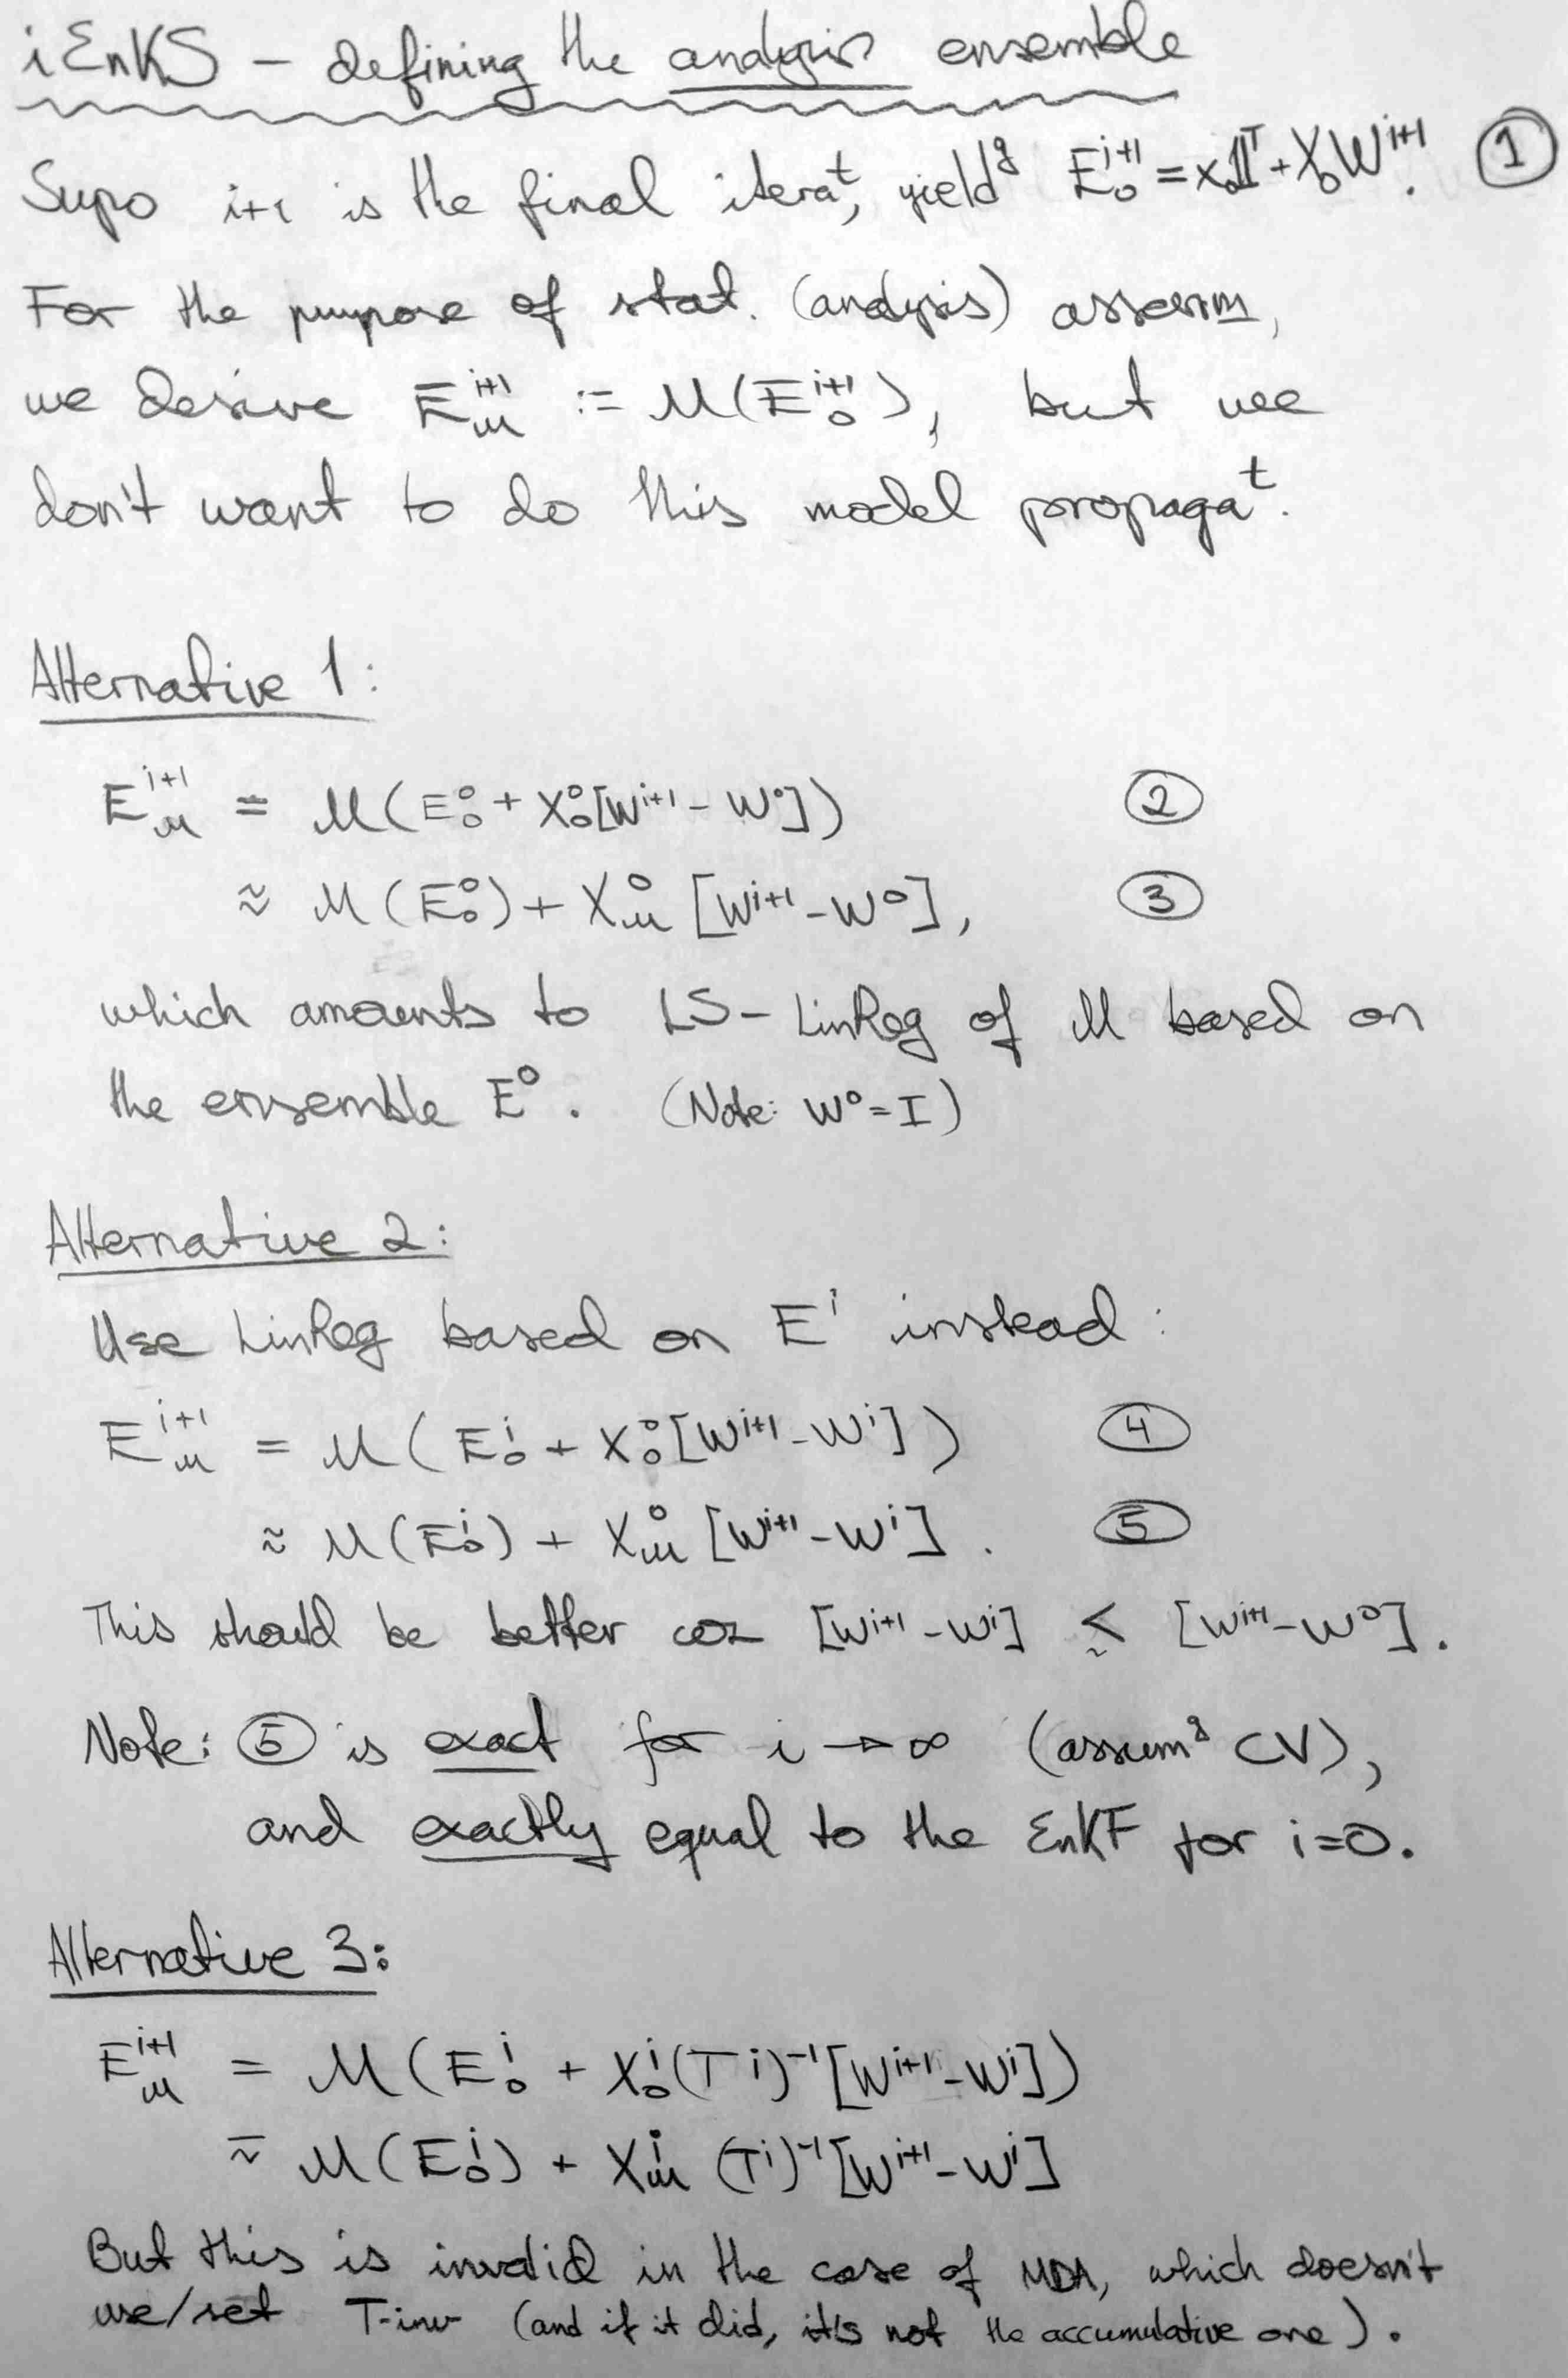 iEnKS – defining the analysis ensemble
Supo i+1 is the final iteraᵗ, yieldᵍ E₀ⁱ⁺¹ = x₀𝟙ᵀ + X₀Wⁱ⁺¹. ①
For the purpose of stat. (analysis) assessm,
we desire Eₘⁱ⁺¹ := M(E₀ⁱ⁺¹), but we
don't want to do this model propagaᵗ.
Alternative 1:
Eₘⁱ⁺¹ = M(E₀⁰ + X₀⁰[Wⁱ⁺¹ – W⁰]) ②
≈ M(E₀⁰) + Xₘ⁰ [Wⁱ⁺¹ – W⁰], ③
which amounts to LS-LinReg of M based on
the ensemble E⁰. (Note: W⁰ = I)
Alternative 2:
Use LinReg based on Eⁱ instead:
Eₘⁱ⁺¹ = M(E₀ⁱ + X₀⁰[Wⁱ⁺¹ – Wⁱ]) ④
≈ M(E₀ⁱ) + Xₘ⁰ [Wⁱ⁺¹ – Wⁱ]. ⑤
This should be better coz [Wⁱ⁺¹ – Wⁱ] ≲ [Wⁱ⁺¹ – W⁰].
Note: ⑤ is exact for i → ∞ (assumᵍ CV),
and exactly equal to the EnKF for i=0.
Alternative 3:
Eₘⁱ⁺¹ = M(E₀ⁱ + X₀ⁱ(Tⁱ)⁻¹[Wⁱ⁺¹ – Wⁱ])
≈ M(E₀ⁱ) + Xₘⁱ (Tⁱ)⁻¹[Wⁱ⁺¹ – Wⁱ]
But this is invalid in the case of MDA, which doesn't
use/set T-inv (and if it did, it's not the accumulative one).